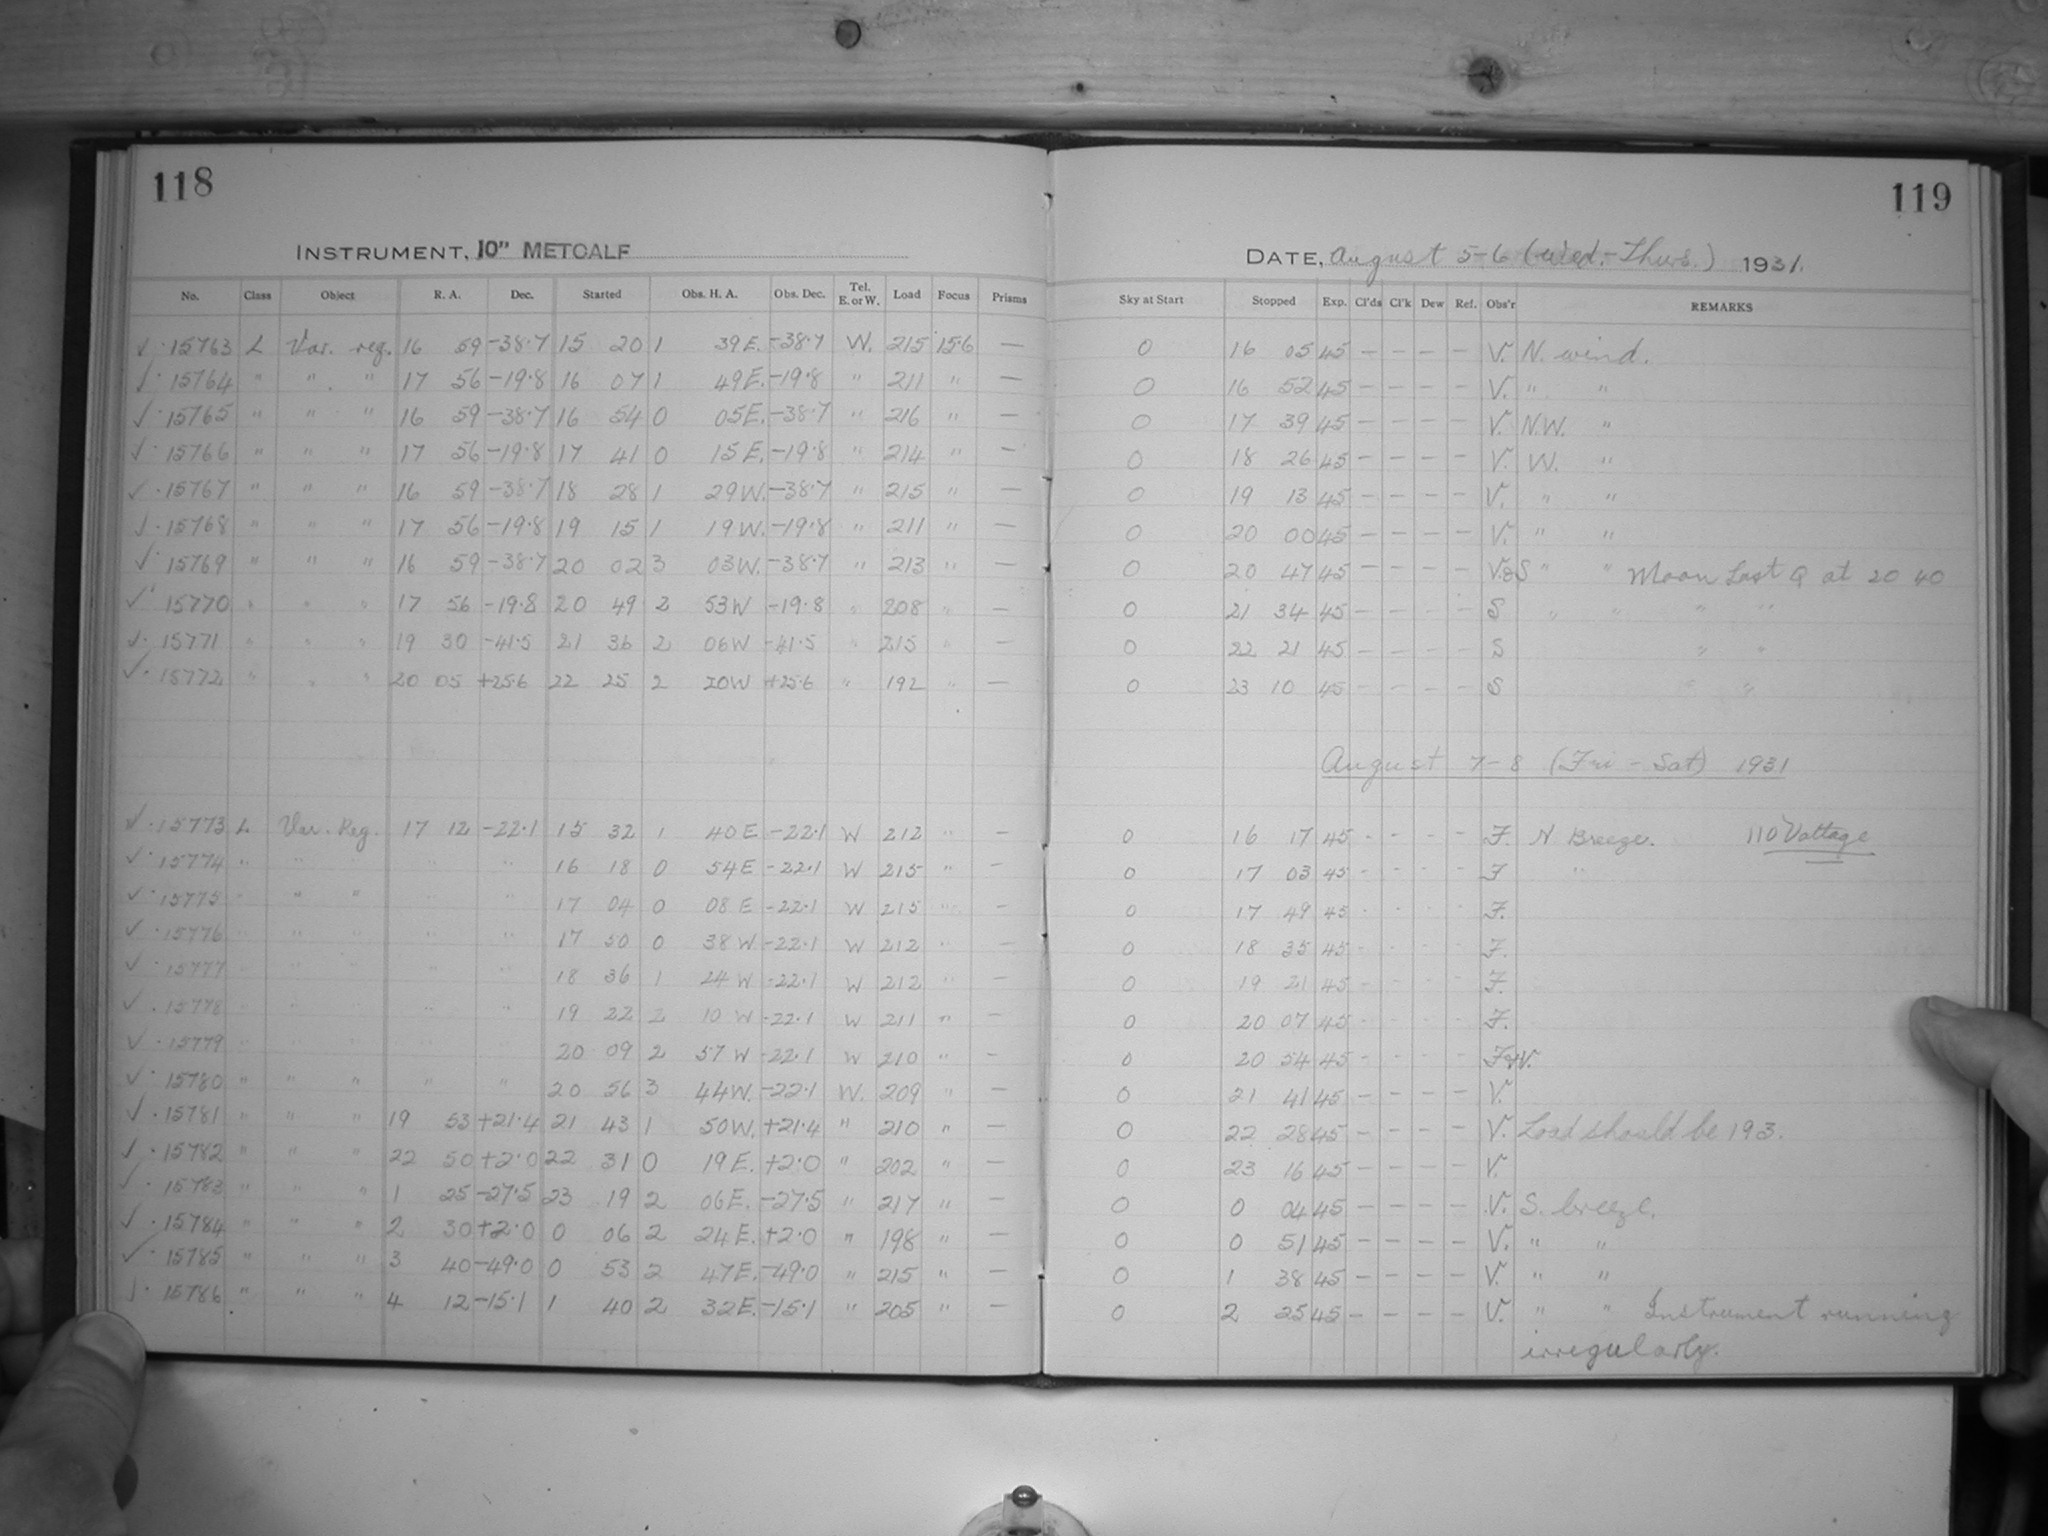 118
119
INSTRUMENT, 10" METCALF
DATE, August 5-6 (Wed.-Thurs.) 1931.
No. Class Object R. A. Dec. Started Obs. H. A. Obs. Dec. Tel. E. or W. Load Focus Prisms Sky at Start Stopped Exp. Cl'ds Cl'k Dew Ref. Obs'r REMARKS
✓ 15763 L Var. reg. 16 59 -38.7 15 20 1 39 E. -38.7 W. 215 15.6 — 0 16 05 45 — — — — V. N. wind.
✓ 15764 " " " 17 56 -19.8 16 07 1 49 E. -19.8 " 211 " — 0 16 52 45 — — — — V. " "
✓ 15765 " " " 16 59 -38.7 16 54 0 05 E. -38.7 " 216 " — 0 17 39 45 — — — — V. N.W. "
✓ 15766 " " " 17 56 -19.8 17 41 0 15 E. -19.8 " 214 " — 0 18 26 45 — — — — V. W. "
✓ 15767 " " " 16 59 -38.7 18 28 1 29 W. -38.7 " 215 " — 0 19 13 45 — — — — V. " "
✓ 15768 " " " 17 56 -19.8 19 15 1 19 W. -19.8 " 211 " — 0 20 00 45 — — — — V. " "
✓ 15769 " " " 16 59 -38.7 20 02 3 03 W. -38.7 " 213 " — 0 20 47 45 — — — — V.&S " " Moon Last Q at 20 40
✓ 15770 " " " 17 56 -19.8 20 49 2 53 W -19.8 " 208 " — 0 21 34 45 — — — — S " " " "
✓ 15771 " " " 19 30 -41.5 21 36 2 06 W -41.5 " 215 " — 0 22 21 45 — — — — S " "
✓ 15772 " " " 20 05 +25.6 22 25 2 20 W +25.6 " 192 " — 0 23 10 45 — — — — S " "
August 7-8 (Fri - Sat) 1931
✓ 15773 L Var. Reg. 17 12 -22.1 15 32 1 40 E -22.1 W 212 " — 0 16 17 45 - - - - F. N Breeze. 110 Voltage
✓ 15774 " " " " " 16 18 0 54 E -22.1 W 215 " — 0 17 03 45 - - - - F "
✓ 15775 " " " " " 17 04 0 08 E -22.1 W 215 " — 0 17 49 45 - - - - F.
✓ 15776 " " " " " 17 50 0 38 W -22.1 W 212 " — 0 18 35 45 - - - - F.
✓ 15777 " " " " " 18 36 1 24 W -22.1 W 212 " — 0 19 21 45 - - - - F.
✓ 15778 " " " " " 19 22 2 10 W -22.1 W 211 " — 0 20 07 45 - - - - F.
✓ 15779 " " " " " 20 09 2 57 W -22.1 W 210 " — 0 20 54 45 - - - - F&V.
✓ 15780 " " " " " 20 56 3 44 W. -22.1 W. 209 " — 0 21 41 45 - - - - V.
✓ 15781 " " " 19 53 +21.4 21 43 1 50 W. +21.4 " 210 " — 0 22 28 45 — — — — V. Load should be 193.
✓ 15782 " " " 22 50 +2.0 22 31 0 19 E. +2.0 " 202 " — 0 23 16 45 — — — — V.
✓ 15783 " " " 1 25 -27.5 23 19 2 06 E. -27.5 " 217 " — 0 0 04 45 — — — — V. S. breeze.
✓ 15784 " " " 2 30 +2.0 0 06 2 24 E. +2.0 " 198 " — 0 0 51 45 — — — — V. " "
✓ 15785 " " " 3 40 -49.0 0 53 2 47 E. -49.0 " 215 " — 0 1 38 45 — — — — V. " "
✓ 15786 " " " 4 12 -15.1 1 40 2 32 E. -15.1 " 205 " — 0 2 25 45 — — — — V. " " Instrument running
irregularly.